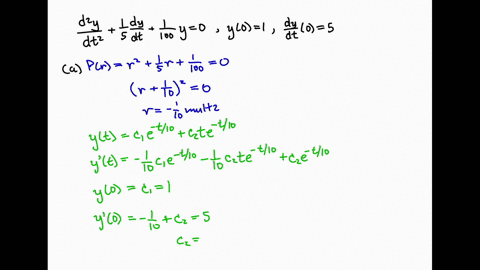 d²y/dt² + 1/5 dy/dt + 1/100 y = 0 , y(0) = 1 , dy/dt (0) = 5
(a) P(r) = r² + 1/5 r + 1/100 = 0
(r + 1/10)² = 0
r = -1/10 mult 2
y(t) = c₁e^(-t/10) + c₂te^(-t/10)
y'(t) = -1/10 c₁e^(-t/10) - 1/10 c₂te^(-t/10) + c₂e^(-t/10)
y(0) = c₁ = 1
y'(0) = -1/10 + c₂ = 5
c₂ =